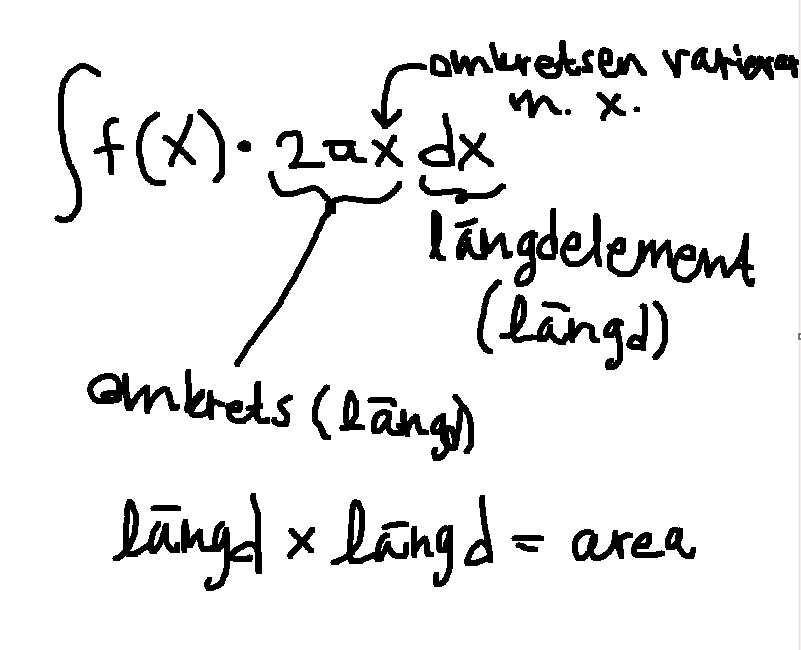 omkretsen varierar
m. x.
∫f(x)·2πx dx
längdelement
(längd)
omkrets (längd)
längd × längd = area